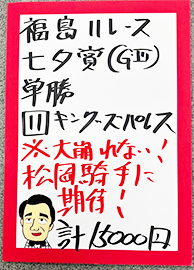 福島11レース
七夕賞(GⅢ)
単勝
11 キングズパレス
※大崩れない!
松岡騎手に
期待!
計15000円